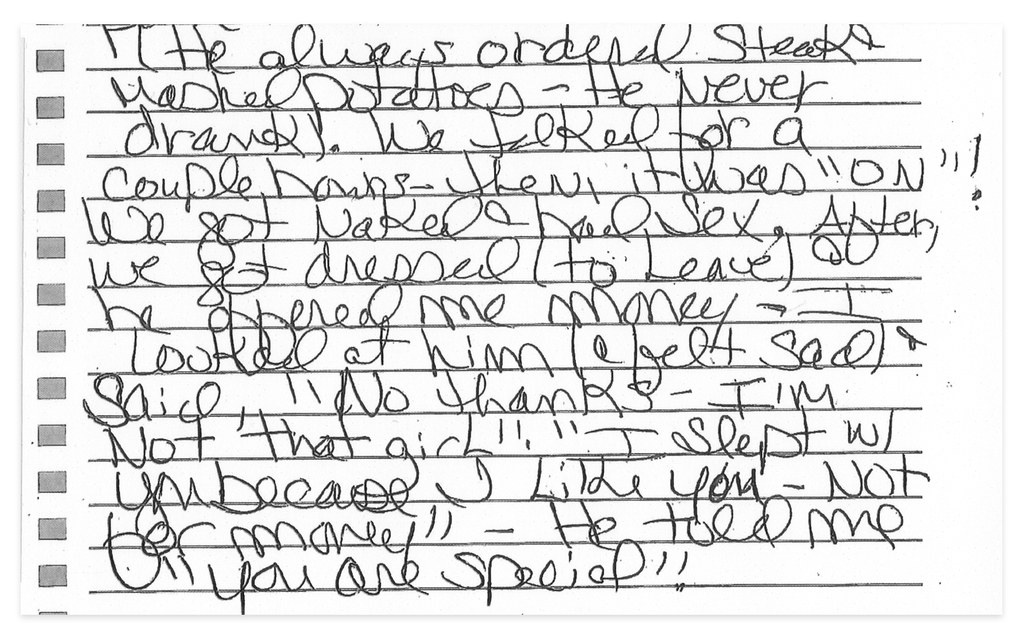 "He always ordered steak &
mashed potatoes - He never
drank!. We talked for a
couple hours - then, it was "ON"!
We got naked & had sex. After,
we got dressed (to leave)
he offered me money - I
looked at him (& felt sad) &
said, "No thanks - I'm
Not 'that girl'". "I slept w/
you because I like you - NOT
for money" - He told me
"you are special"